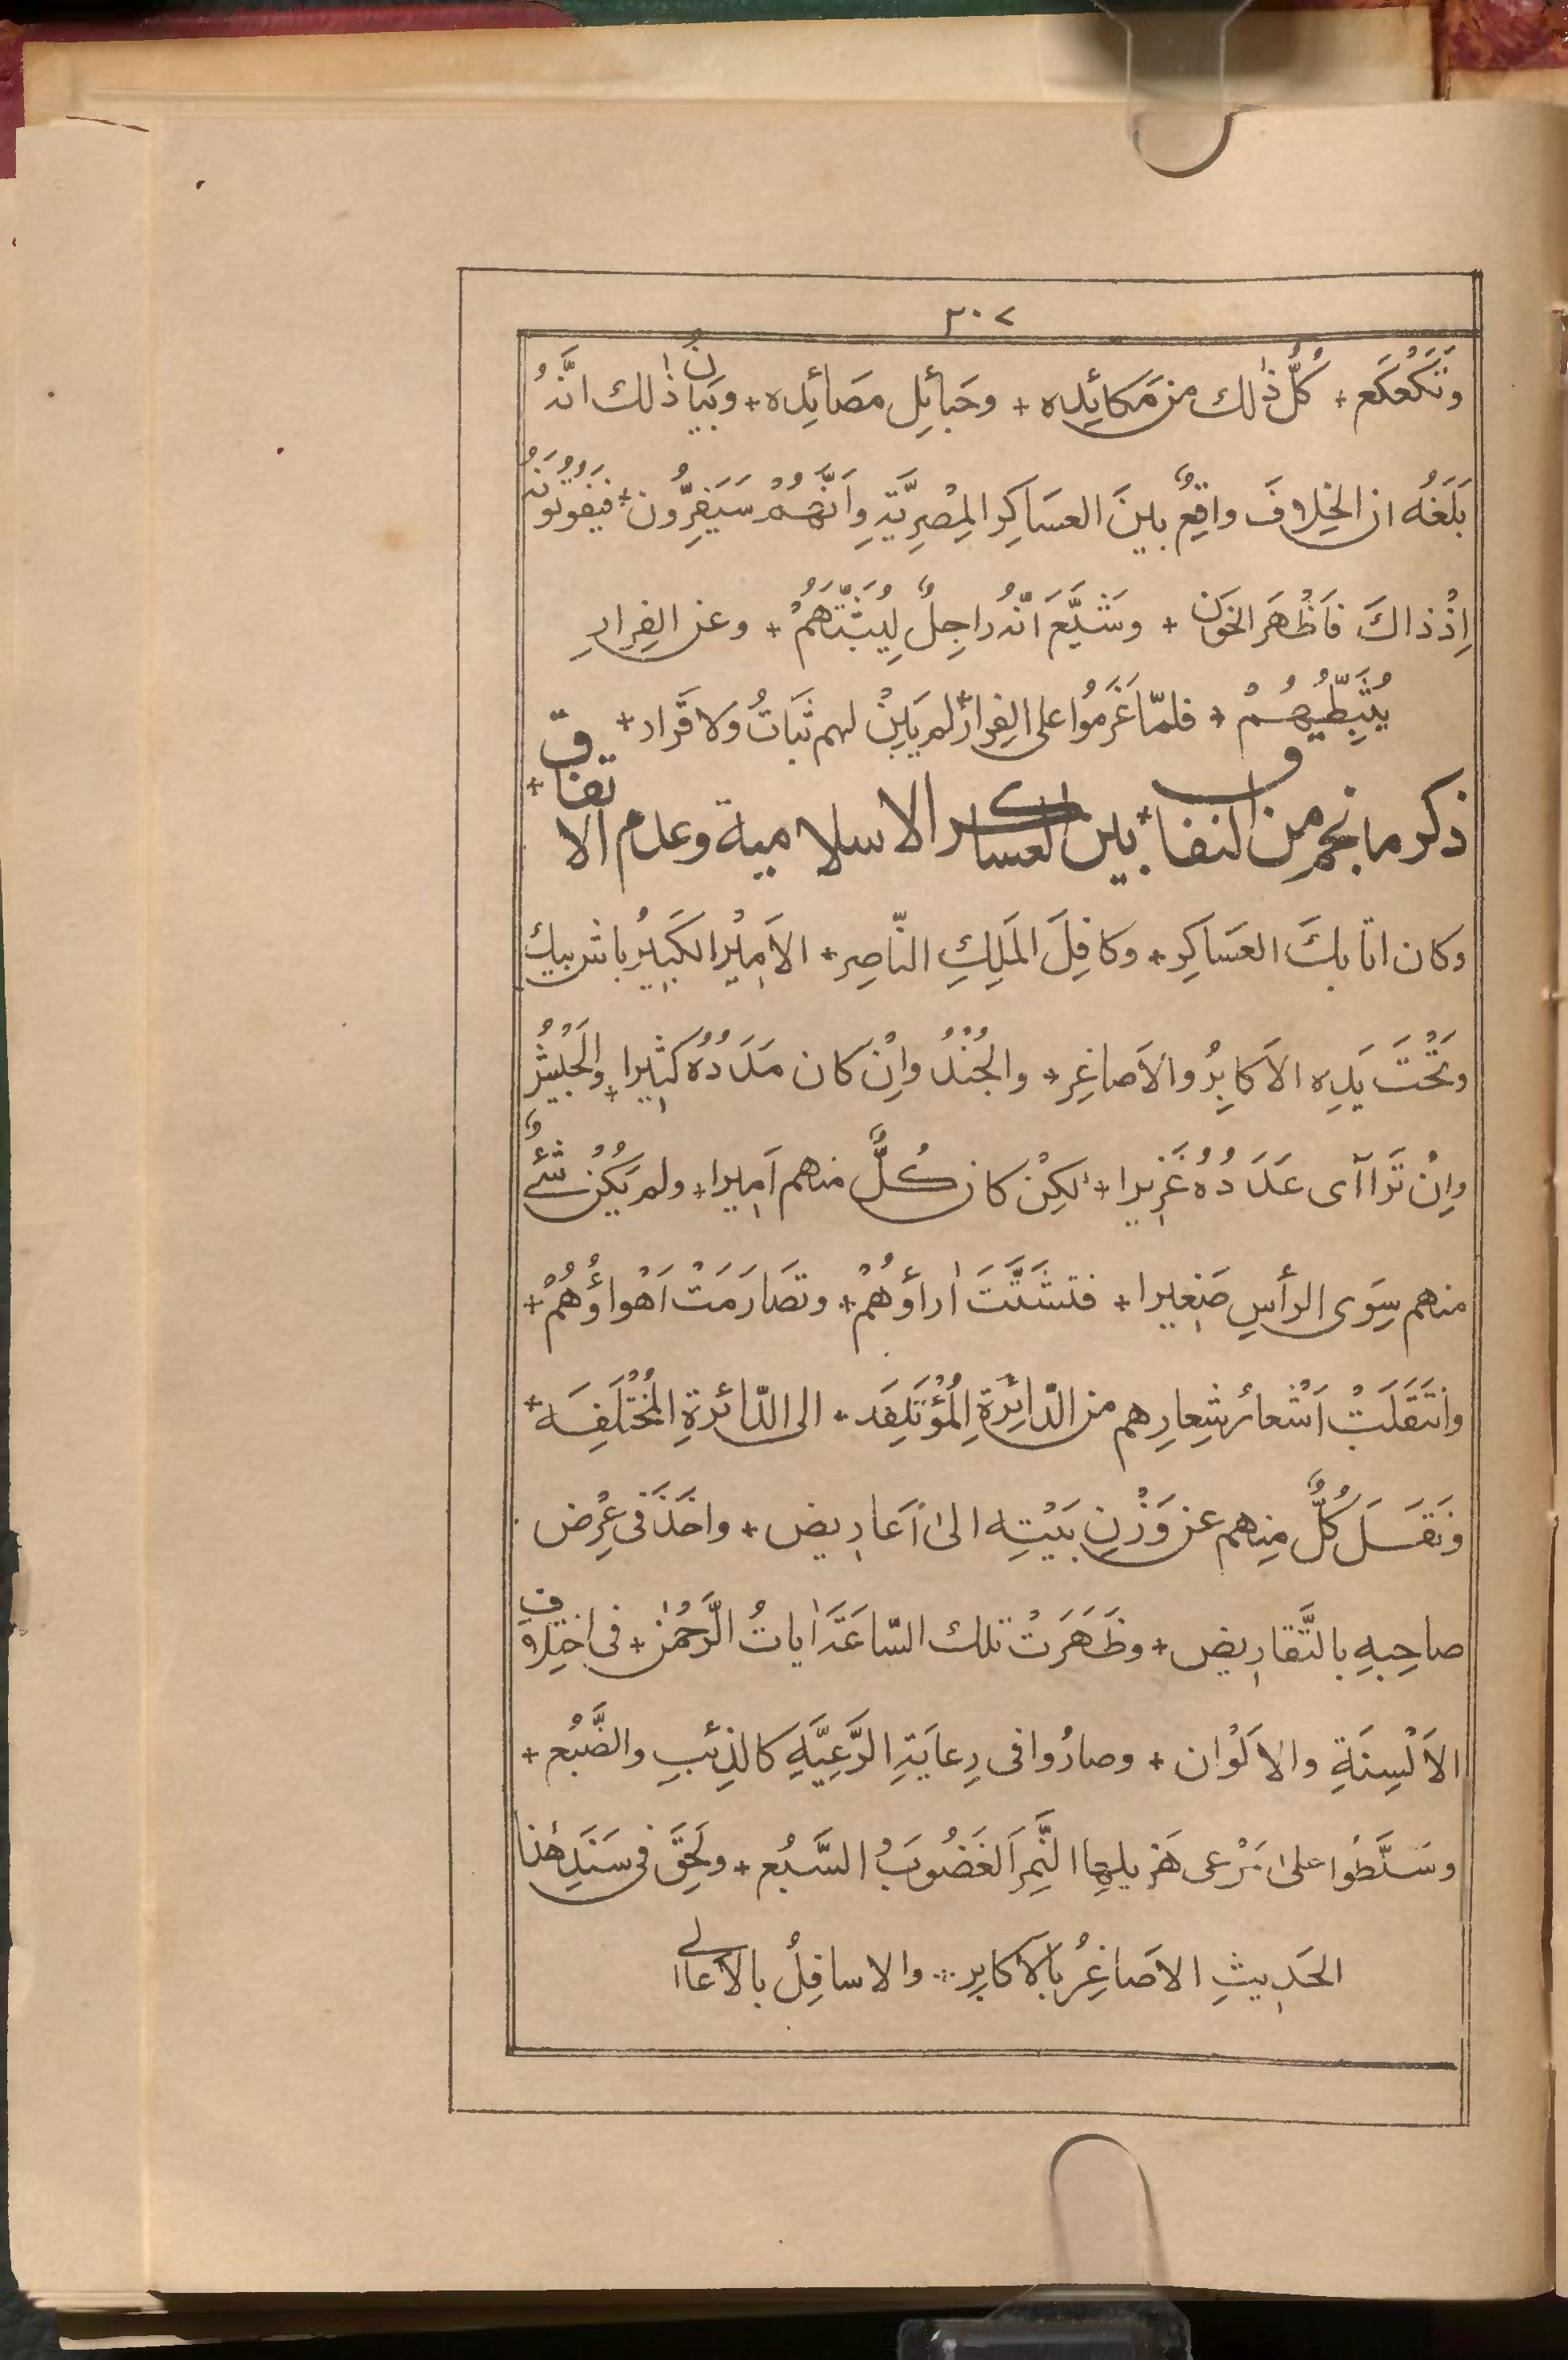 ٣٠٧
وَتَكَعْكَع + كُلُّ ذٰلك من مَكائِدِه + وحَبائِلِ مصَائِدِه + وبَيَانُ ذٰلك انَّهُ
بَلَغَهُ ان الخِلافَ واقِعٌ بينَ العسَاكِر المِصْرِيَّةِ وَاَنَّهُمْ سَيَفِرُّون + فيَفُوتُونَهُ
اِذْ ذاكَ فَاَظْهَرَ الخَوَن + وشَيَّعَ اَنّهُ راجِلٌ لِيُثَبِّتَهُمْ + وعن الفِرارِ
يُثَبِّطِيهُمْ + فلمّا عَزَمُوا على الفِرار + لم يَبِنْ لهم ثَبَاتٌ ولا قَرار +
ذكر ما نجم من النفاق + بين العساكر الاسلامية وعدم الاتفاق +
وكان اتابكَ العسَاكِر + وكافِلَ المَلِكِ النّاصِر + الاَمِيْر الكَبِيْرُ باش بيك
وتَحْتَ يَدِه الاَكابِرُ والاَصاغِر + والجُنْدُ واِنْ كان مَدَدُهُ كثِيرا + والجَيْشُ
واِنْ تَراآى عَدَدُهُ غَزِيرا + لكِنْ كان كُلٌّ منهم اَمِيرا + ولم يَكُنْ شَئٌ
منهم سِوَى الرأسِ صَغِيرا + فتشَتَّتَ اٰراؤُهُمْ + وتصَارَمَتْ اَهْواؤُهُمْ +
وانتَقَلَتْ اَشْعارُ شِعارِهم من الدّائِرَةِ المُؤْتَلِفَه + الى الدّائرةِ المُخْتَلِفَه +
ونَقَسَلَ كُلٌّ مِنهم عن وَزْنِ بَيْتِه الىٰ اَعارِيض + واخَذَ فى عِرْض
صاحِبِهِ بالتَّقارِيض + وظَهَرَتْ تلك السّاعَةَ اٰياتُ الرَّحْمٰن + فى اختِلافِ
الاَلْسِنَةِ والاَلوْان + وصارُوا فى رِعايَةِ الرَّعِيَّهِ كالذِئبِ والضَّبُع +
وسَلَّطُوا علىٰ مَرْعى هَزِيلِها النَّمِرَ الغَضُوبَ السَّبُع + ولَحِقَ فى سَنَدِ هٰذا
الحَدِيثِ الاَصاغِرُ بالاَكابِر .:. والاسافِلُ بالاَعالى